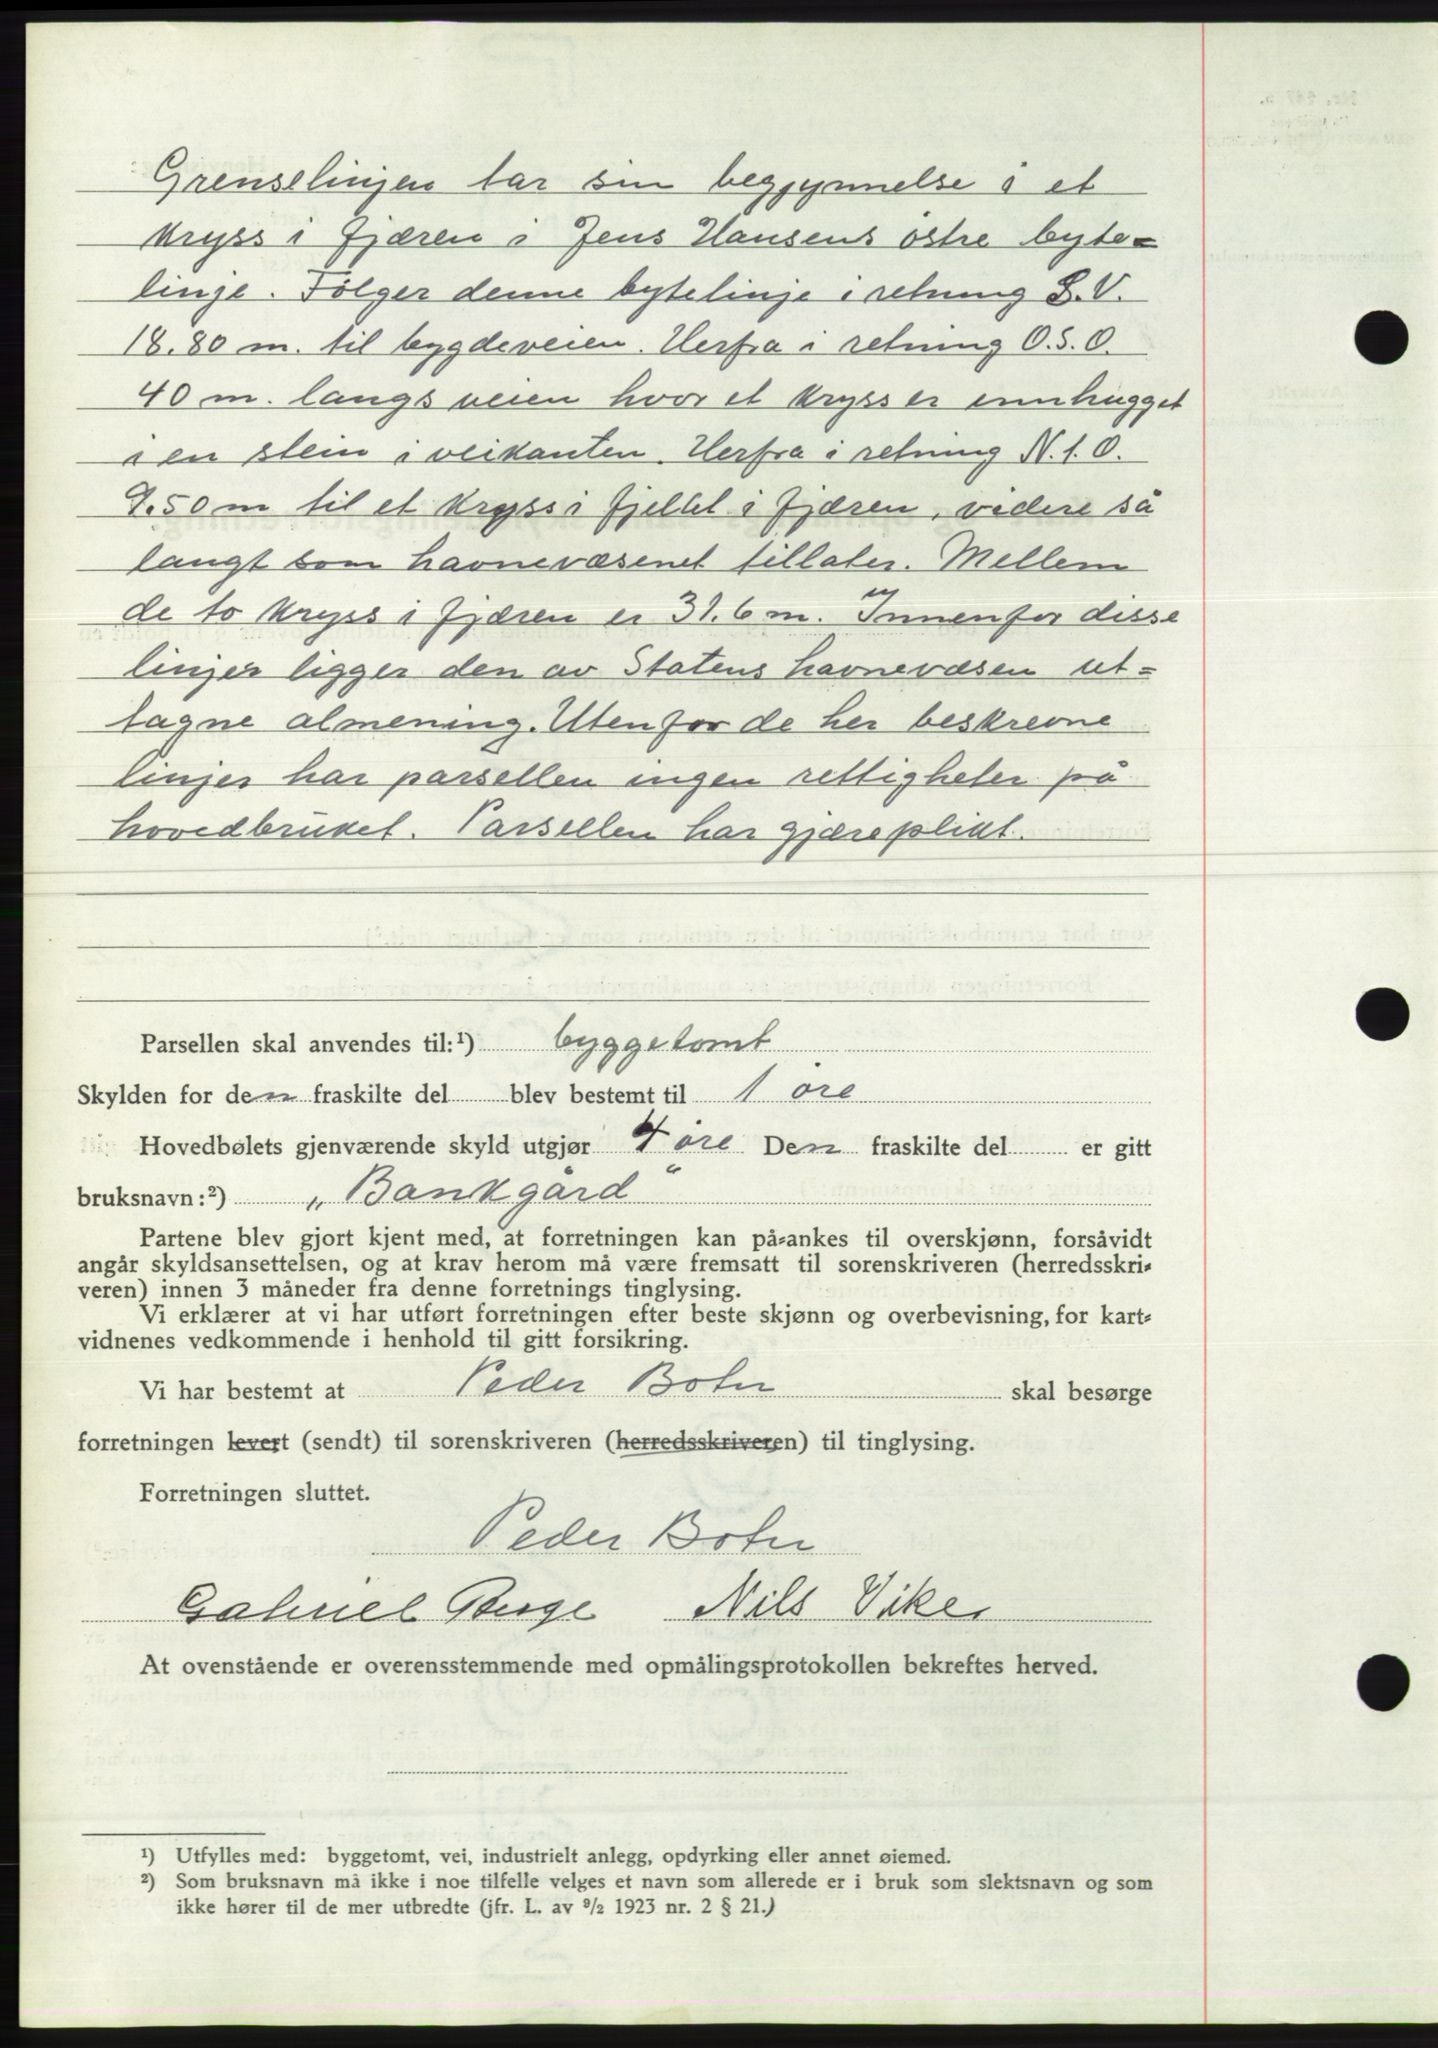 Grenselinjen tar sin begjynnelse i et
kryss i fjæren i Jens Hansens østre byte=
linje. Følger denne bytelinje i retning S.V.
18.80 m. til bygdeveien. Herfra i retning O.S.O.
40 m. langs veien hvor et kryss er innhugget
i en stein i veikanten. Herfra i retning N.t.O.
9.50 m til et kryss i fjellet i fjæren, videre så
langt som havnevæsenet tillater. Mellem
de to kryss i fjæren er 31.6 m. Innenfor disse
linjer ligger den av Statens havnevæsen ut=
tagne almening. Utenfor de her beskrevne
linjer har parsellen ingen rettigheter på
hovedbruket. Parsellen har gjæreplikt.
Parsellen skal anvendes til:¹) byggetomt
Skylden for den fraskilte del blev bestemt til 1 øre
Hovedbølets gjenværende skyld utgjør 4 øre Den fraskilte del er gitt
bruksnavn:²) „Bankgård"
Partene blev gjort kjent med, at forretningen kan på-ankes til overskjønn, forsåvidt
angår skyldsansettelsen, og at krav herom må være fremsatt til sorenskriveren (herredsskri-
veren) innen 3 måneder fra denne forretnings tinglysing.
Vi erklærer at vi har utført forretningen efter beste skjønn og overbevisning, for kart-
vidnenes vedkommende i henhold til gitt forsikring.
Vi har bestemt at Peder Botn skal besørge
forretningen levert (sendt) til sorenskriveren (herredsskriveren) til tinglysing.
Forretningen sluttet.
Peder Botn
Gabriel Berge Nils Vike
At ovenstående er overensstemmende med opmålingsprotokollen bekreftes herved.
¹) Utfylles med: byggetomt, vei, industrielt anlegg, opdyrking eller annet øiemed.
²) Som bruksnavn må ikke i noe tilfelle velges et navn som allerede er i bruk som slektsnavn og som
ikke hører til de mer utbredte (jfr. L. av ⁹/₂ 1923 nr. 2 § 21.)